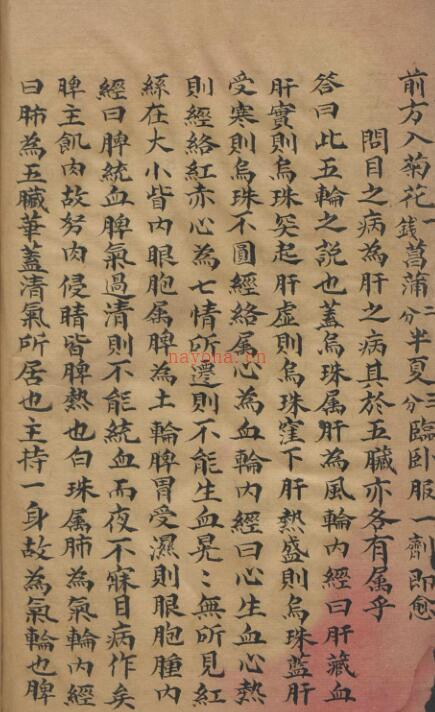 前方入菊花一錢菖蒲二分半夏三分臨卧服一劑即愈
問目之病為肝之病其於五臟亦各有属乎
答曰此五輪之說也蓋烏珠属肝為風輪内經曰肝藏血
肝實則烏珠突起肝虚則烏珠窪下肝熱盛則烏珠藍肝
受寒則烏珠不圓經絡属心為血輪内經曰心生血心熱
則經絡紅赤心為七情所遷則不能生血晃〻無所見紅
絲在大小眥内眼胞属脾為土輪脾胃受濕則眼胞腫内
經曰脾統血脾氣過清則不能統血而夜不寐目病作矣
脾主飢肉故努肉侵睛皆脾熱也白珠属肺為氣輪内經
曰肺為五臟華蓋清氣所居也主持一身故為氣輪也脾
nayona.cn